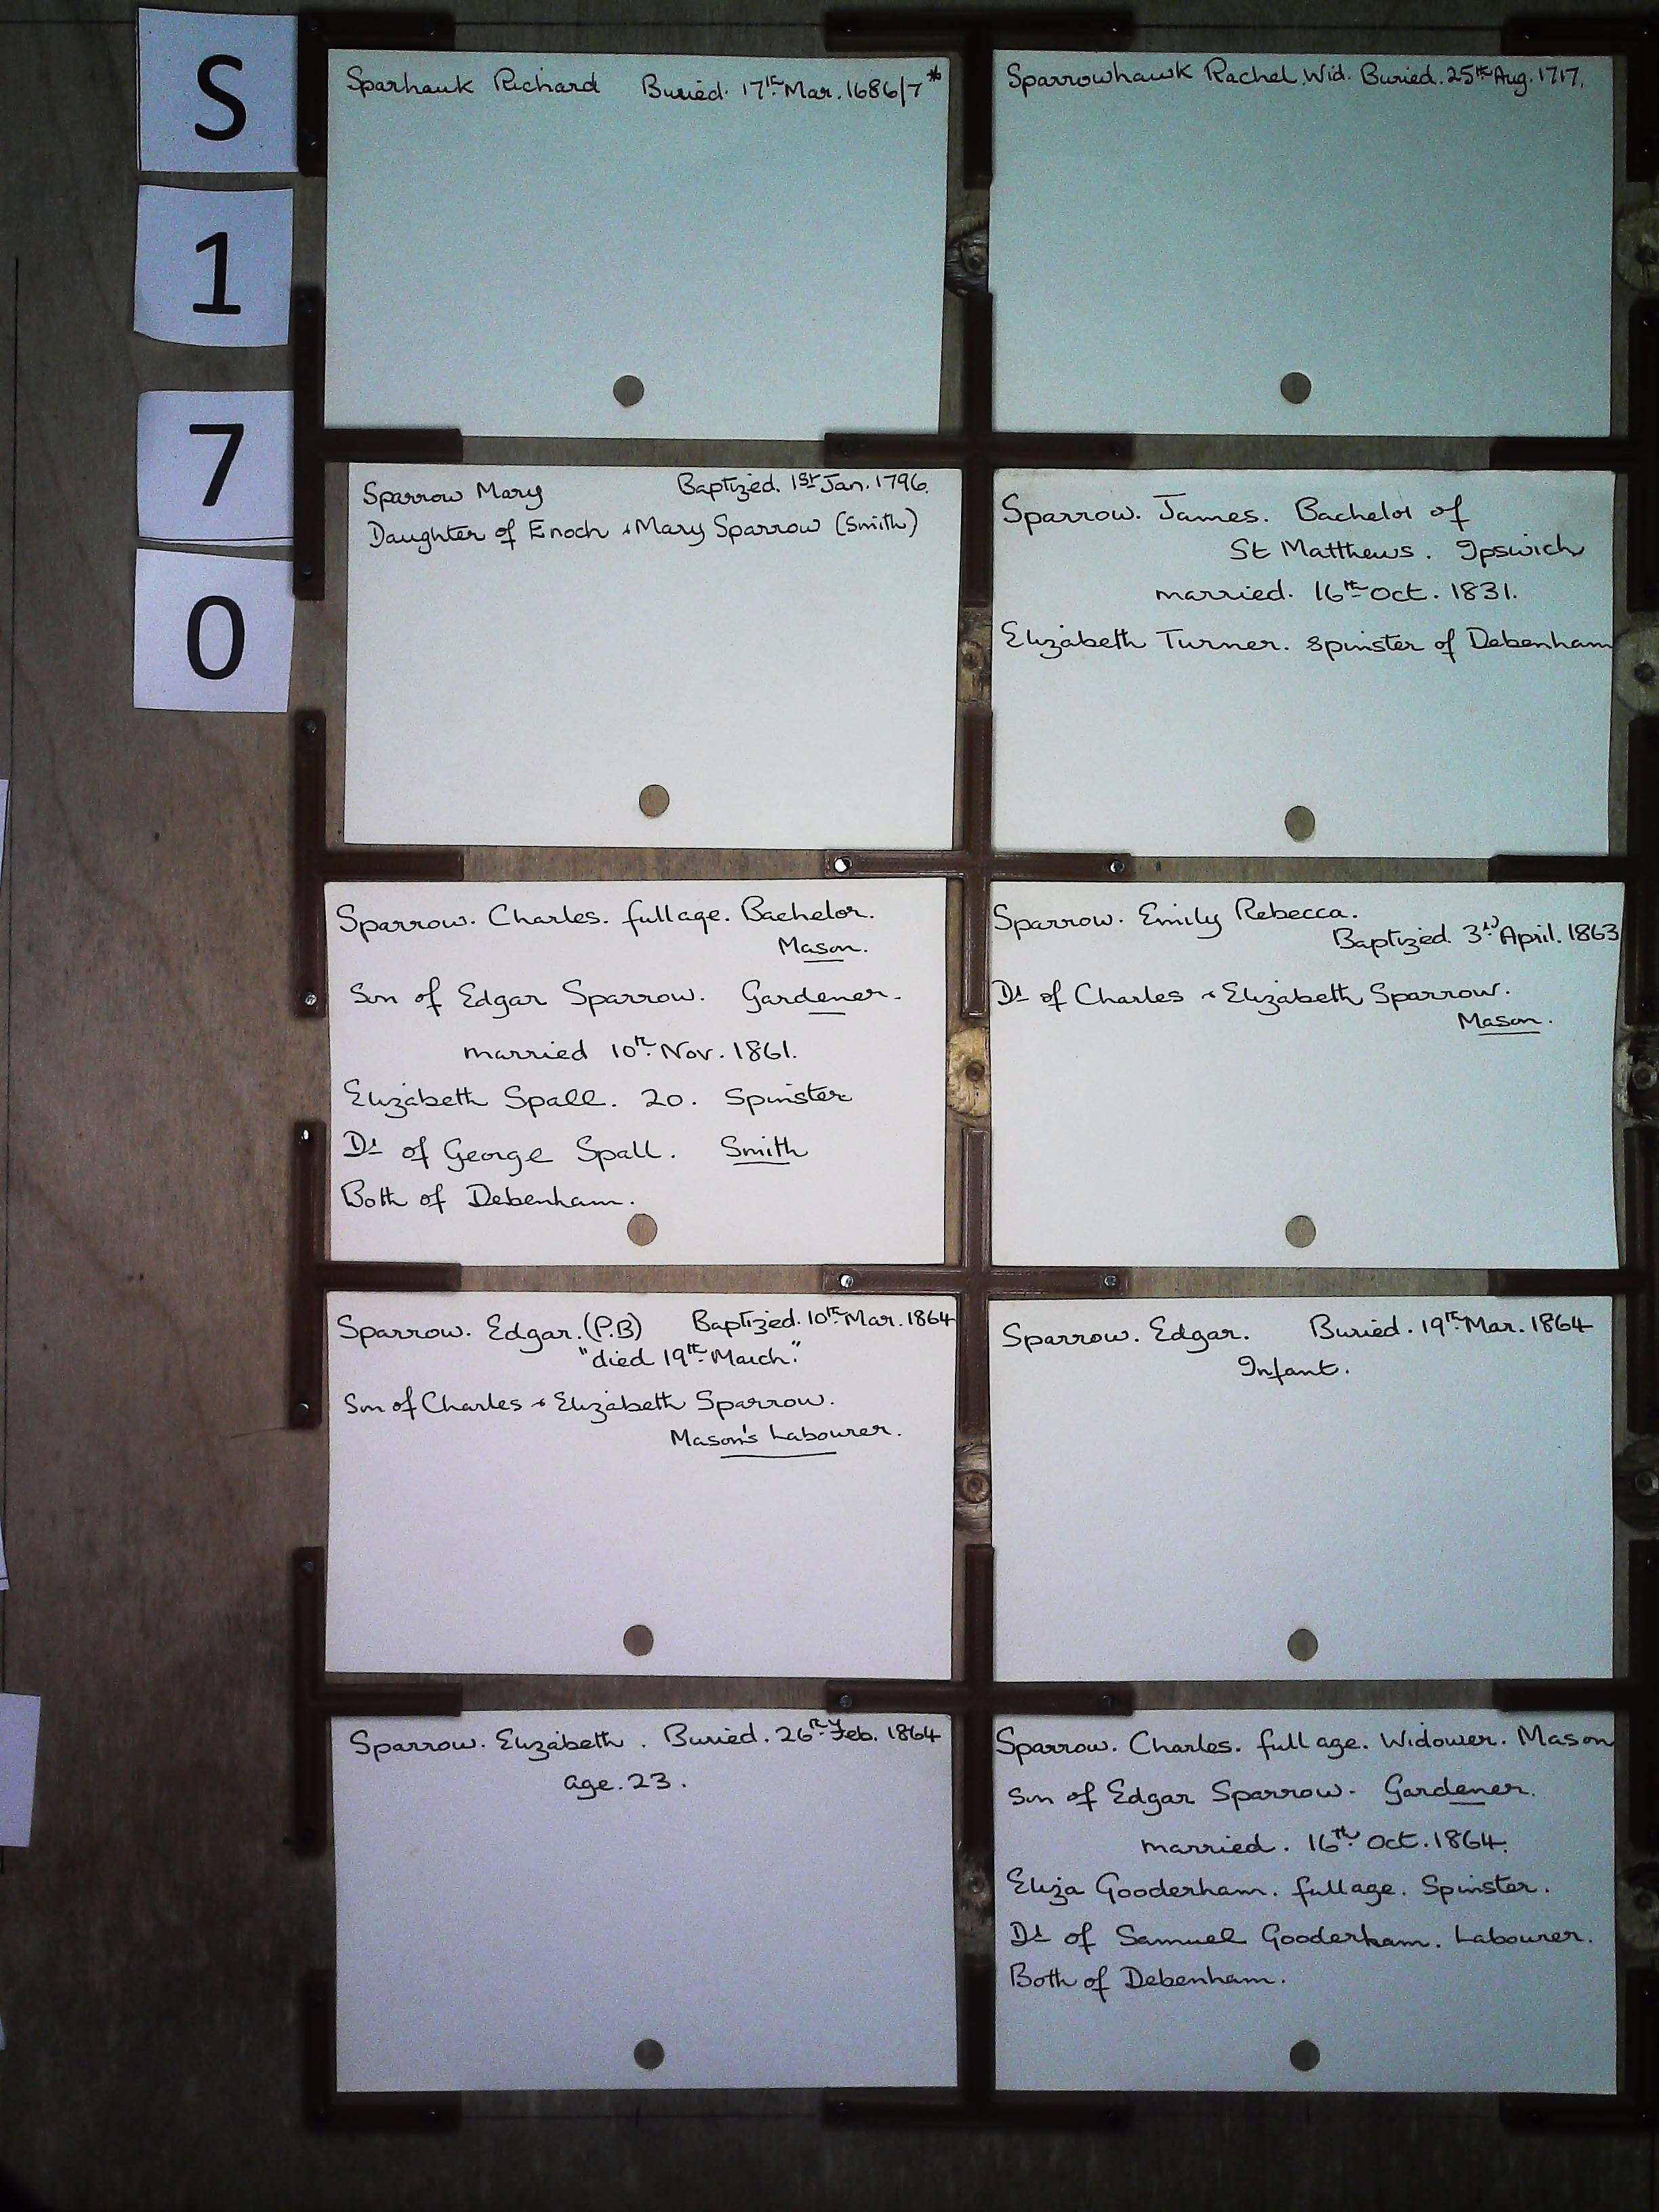 S
1
7
0
Sparhauk Richard Buried. 17th Mar. 1686/7 *
Sparrowhawk Rachel Wid. Buried. 25th Aug. 1717.
Sparrow Mary Baptized. 1st Jan. 1796.
Daughter of Enoch & Mary Sparrow (Smith)
Sparrow. James. Bachelor of
St Matthews. Ipswich
married. 16th Oct. 1831.
Elizabeth Turner. Spinster of Debenham
Sparrow. Charles. full age. Bachelor.
Mason.
Son of Edgar Sparrow. Gardener.
married 10th Nov. 1861.
Elizabeth Spall. 20. Spinster
Dr of George Spall. Smith
Both of Debenham.
Sparrow. Emily Rebecca.
Baptized. 3rd April. 1863
Dr of Charles & Elizabeth Sparrow.
Mason.
Sparrow. Edgar. (P.B) Baptized. 10th Mar. 1864
"died 19th March."
Son of Charles & Elizabeth Sparrow.
Mason's Labourer.
Sparrow. Edgar. Buried. 19th Mar. 1864
Infant.
Sparrow. Elizabeth. Buried. 26th Feb. 1864
age. 23.
Sparrow. Charles. full age. Widower. Mason
Son of Edgar Sparrow. Gardener.
married. 16th Oct. 1864.
Eliza Gooderham. full age. Spinster.
Dr of Samuel Gooderham. Labourer.
Both of Debenham.